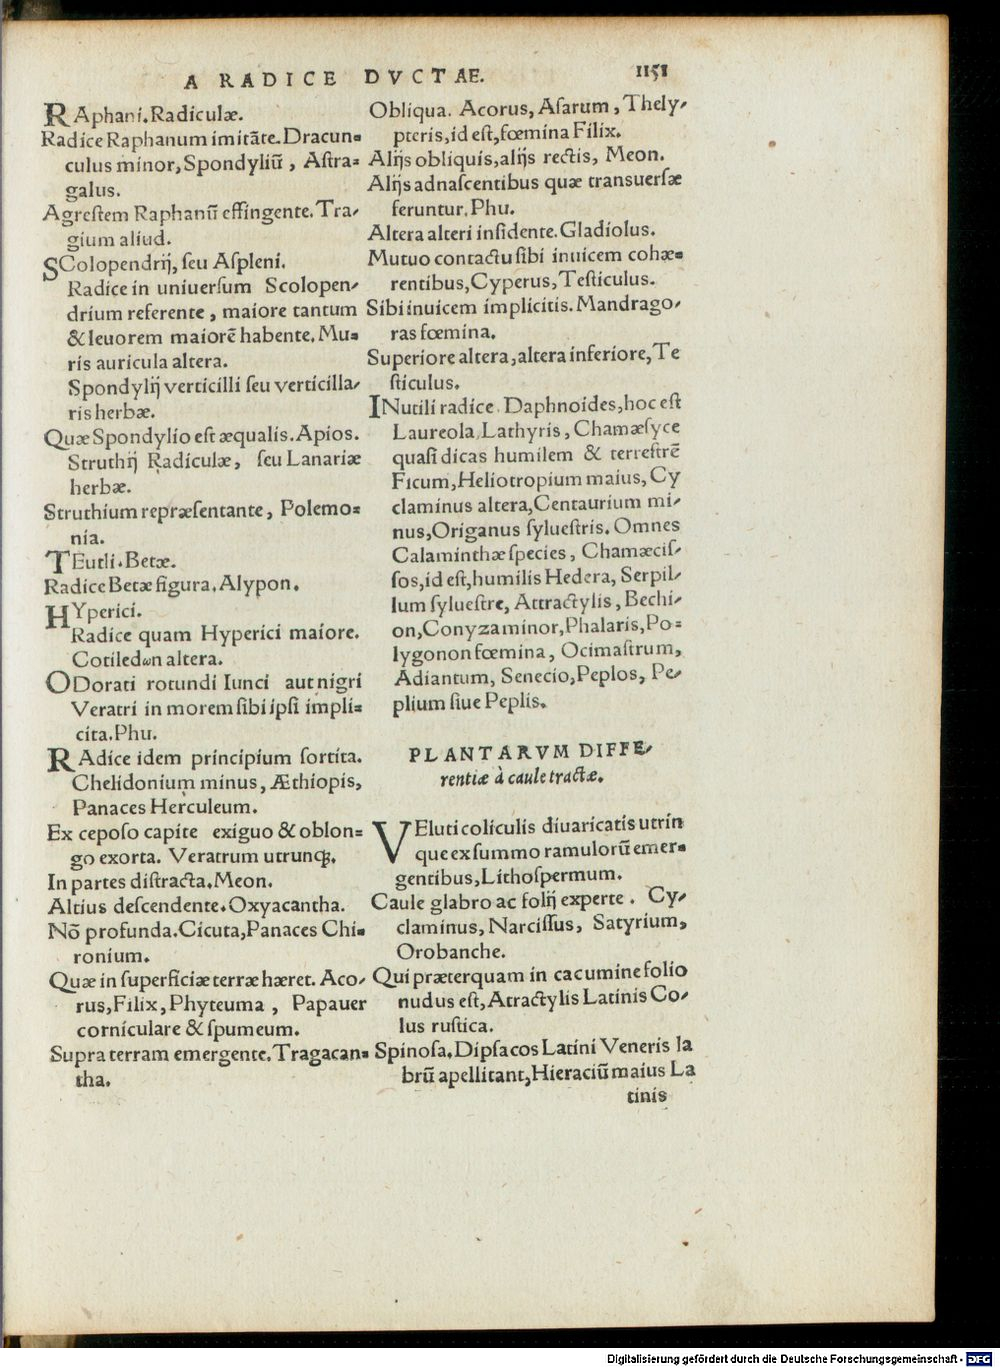 A RADICE DVCTAE. 1151
RAphani. Radiculæ.
Radice Raphanum imitãte. Dracun=
culus minor, Spondyliũ, Aſtra=
galus.
Agreſtem Raphanũ effingente. Tra/
gium aliud.
SColopendrij, ſeu Aſpleni.
Radice in uniuerſum Scolopen/
drium referente, maiore tantum
& leuorem maiorẽ habente. Mu=
ris auricula altera.
Spondylij verticilli ſeu verticilla/
ris herbæ.
Quæ Spondylio eſt æqualis. Apios.
Struthij Radiculæ, ſeu Lanariæ
herbæ.
Struthium repræſentante, Polemo=
nia.
TEutli. Betæ.
Radice Betæ figura. Alypon.
HYperici.
Radice quam Hyperici maiore.
Cotiledωn altera.
ODorati rotundi Iunci aut nigri
Veratri in morem ſibi ipſi impli=
cita. Phu.
RAdice idem principium ſortita.
Chelidonium minus, Æthiopis,
Panaces Herculeum.
Ex cepoſo capite exiguo & oblon=
go exorta. Veratrum utrunq;.
In partes diſtracta. Meon.
Altius deſcendente. Oxyacantha.
Nõ profunda. Cicuta, Panaces Chi=
ronium.
Quæ in ſuperficiæ terræ hæret. Aco/
rus, Filix, Phyteuma, Papauer
corniculare & ſpumeum.
Supra terram emergente. Tragacan=
tha.
Obliqua. Acorus, Aſarum, Thely/
pteris, id eſt, fœmina Filix.
Alijs obliquis, alijs rectis, Meon.
Alijs adnaſcentibus quæ transuerſæ
feruntur. Phu.
Altera alteri inſidente. Gladiolus.
Mutuo contactu ſibi inuicem cohæ=
rentibus, Cyperus, Teſticulus.
Sibi inuicem implicitis. Mandrago/
ras fœmina.
Superiore altera, altera inferiore, Te
ſticulus.
INutili radice. Daphnoides, hoc eſt
Laureola, Lathyris, Chamæſyce
quaſi dicas humilem & terreſtrẽ
Ficum, Heliotropium maius, Cy
claminus altera, Centaurium mi/
nus, Origanus ſylueſtris. Omnes
Calaminthæ ſpecies, Chamæciſ/
ſos, id eſt, humilis Hedera, Serpil/
lum ſylueſtre, Attractylis, Bechi/
on, Conyza minor, Phalaris, Po=
lygonon fœmina, Ocimaſtrum,
Adiantum, Senecio, Peplos, Pe/
plium ſiue Peplis.
PLANTARVM DIFFE/
rentiæ à caule tractæ.
VEluti coliculis diuaricatis utrin
que ex ſummo ramulorũ emer=
gentibus, Lithoſpermum.
Caule glabro ac folij experte. Cy/
claminus, Narciſſus, Satyrium,
Orobanche.
Qui præterquam in cacumine folio
nudus eſt, Atractylis Latinis Co/
lus ruſtica.
Spinoſa. Dipſacos Latini Veneris la
brũ apellitant, Hieraciũ maius La
tinis
Digitalisierung gefördert durch die Deutsche Forschungsgemeinschaft - DFG